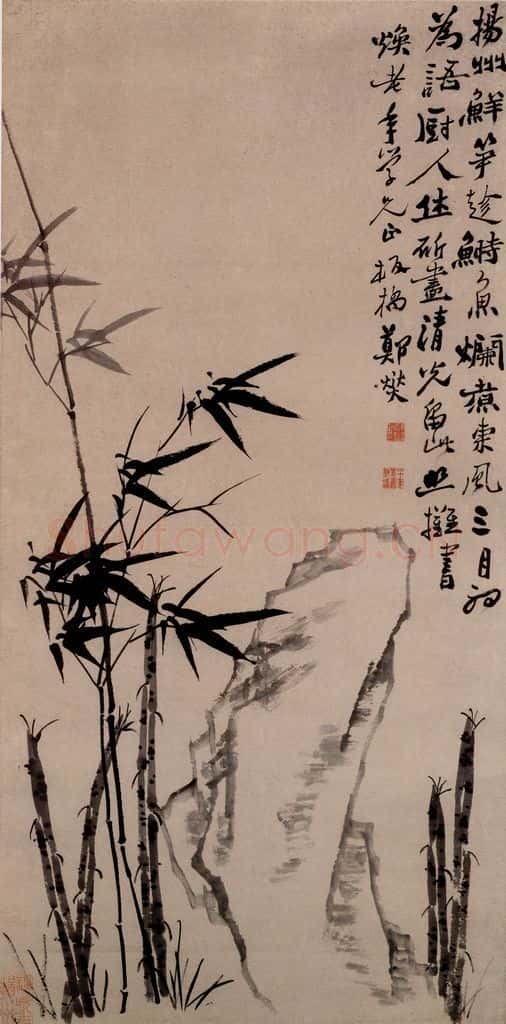 揚州鮮笋趁鰣魚爛煮東風三月初
為語厨人休斫盡清光留此照攤書
煥老年學兄正板橋鄭燮
Shufawang.cn